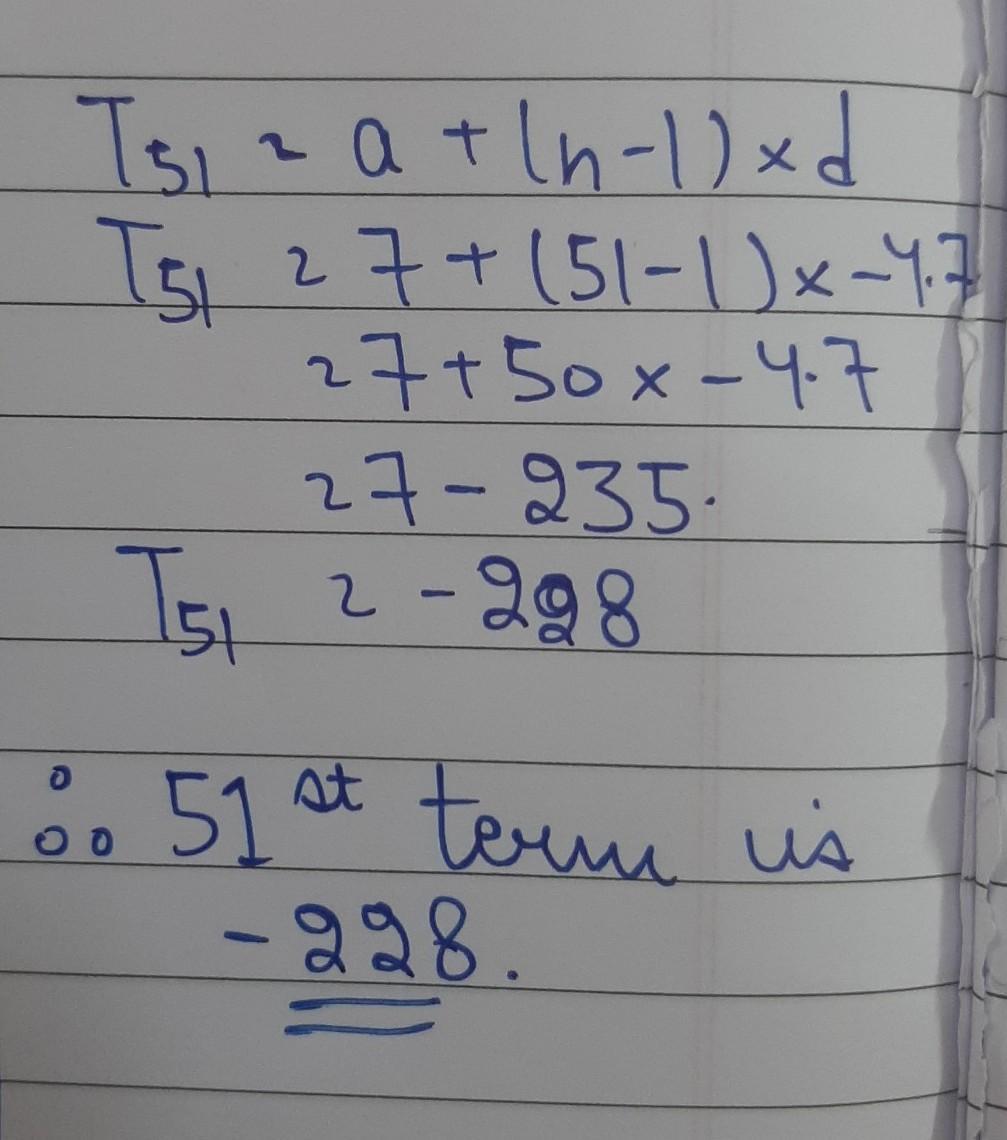 T51 = a + (n-1) x d
T51 = 7 + (51-1) x -4.7
= 7 + 50 x -4.7
= 7 - 235.
T51 = -228
∴ 51st term is
-228.